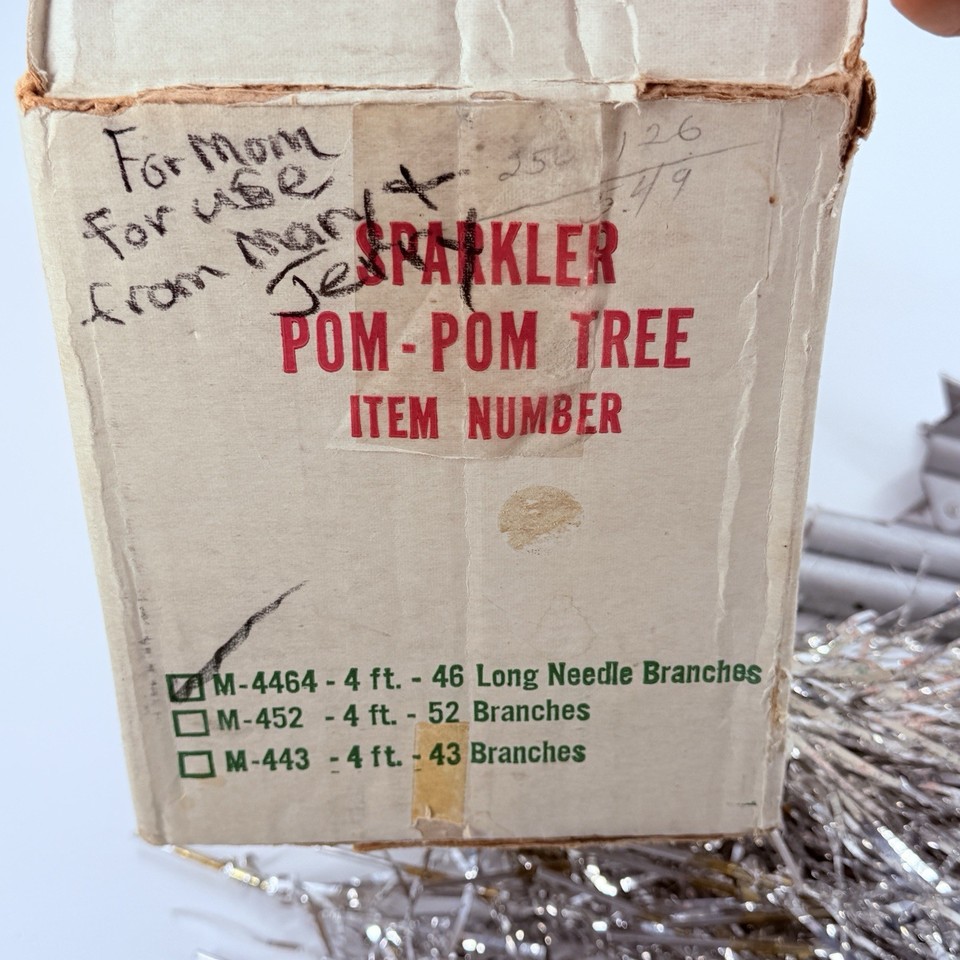 For Mom
for use
from Mary +
Jerry
126
549
SPARKLER
POM-POM TREE
ITEM NUMBER
M-4464 - 4 ft. - 46 Long Needle Branches
M-452 - 4 ft. - 52 Branches
M-443 - 4 ft. - 43 Branches